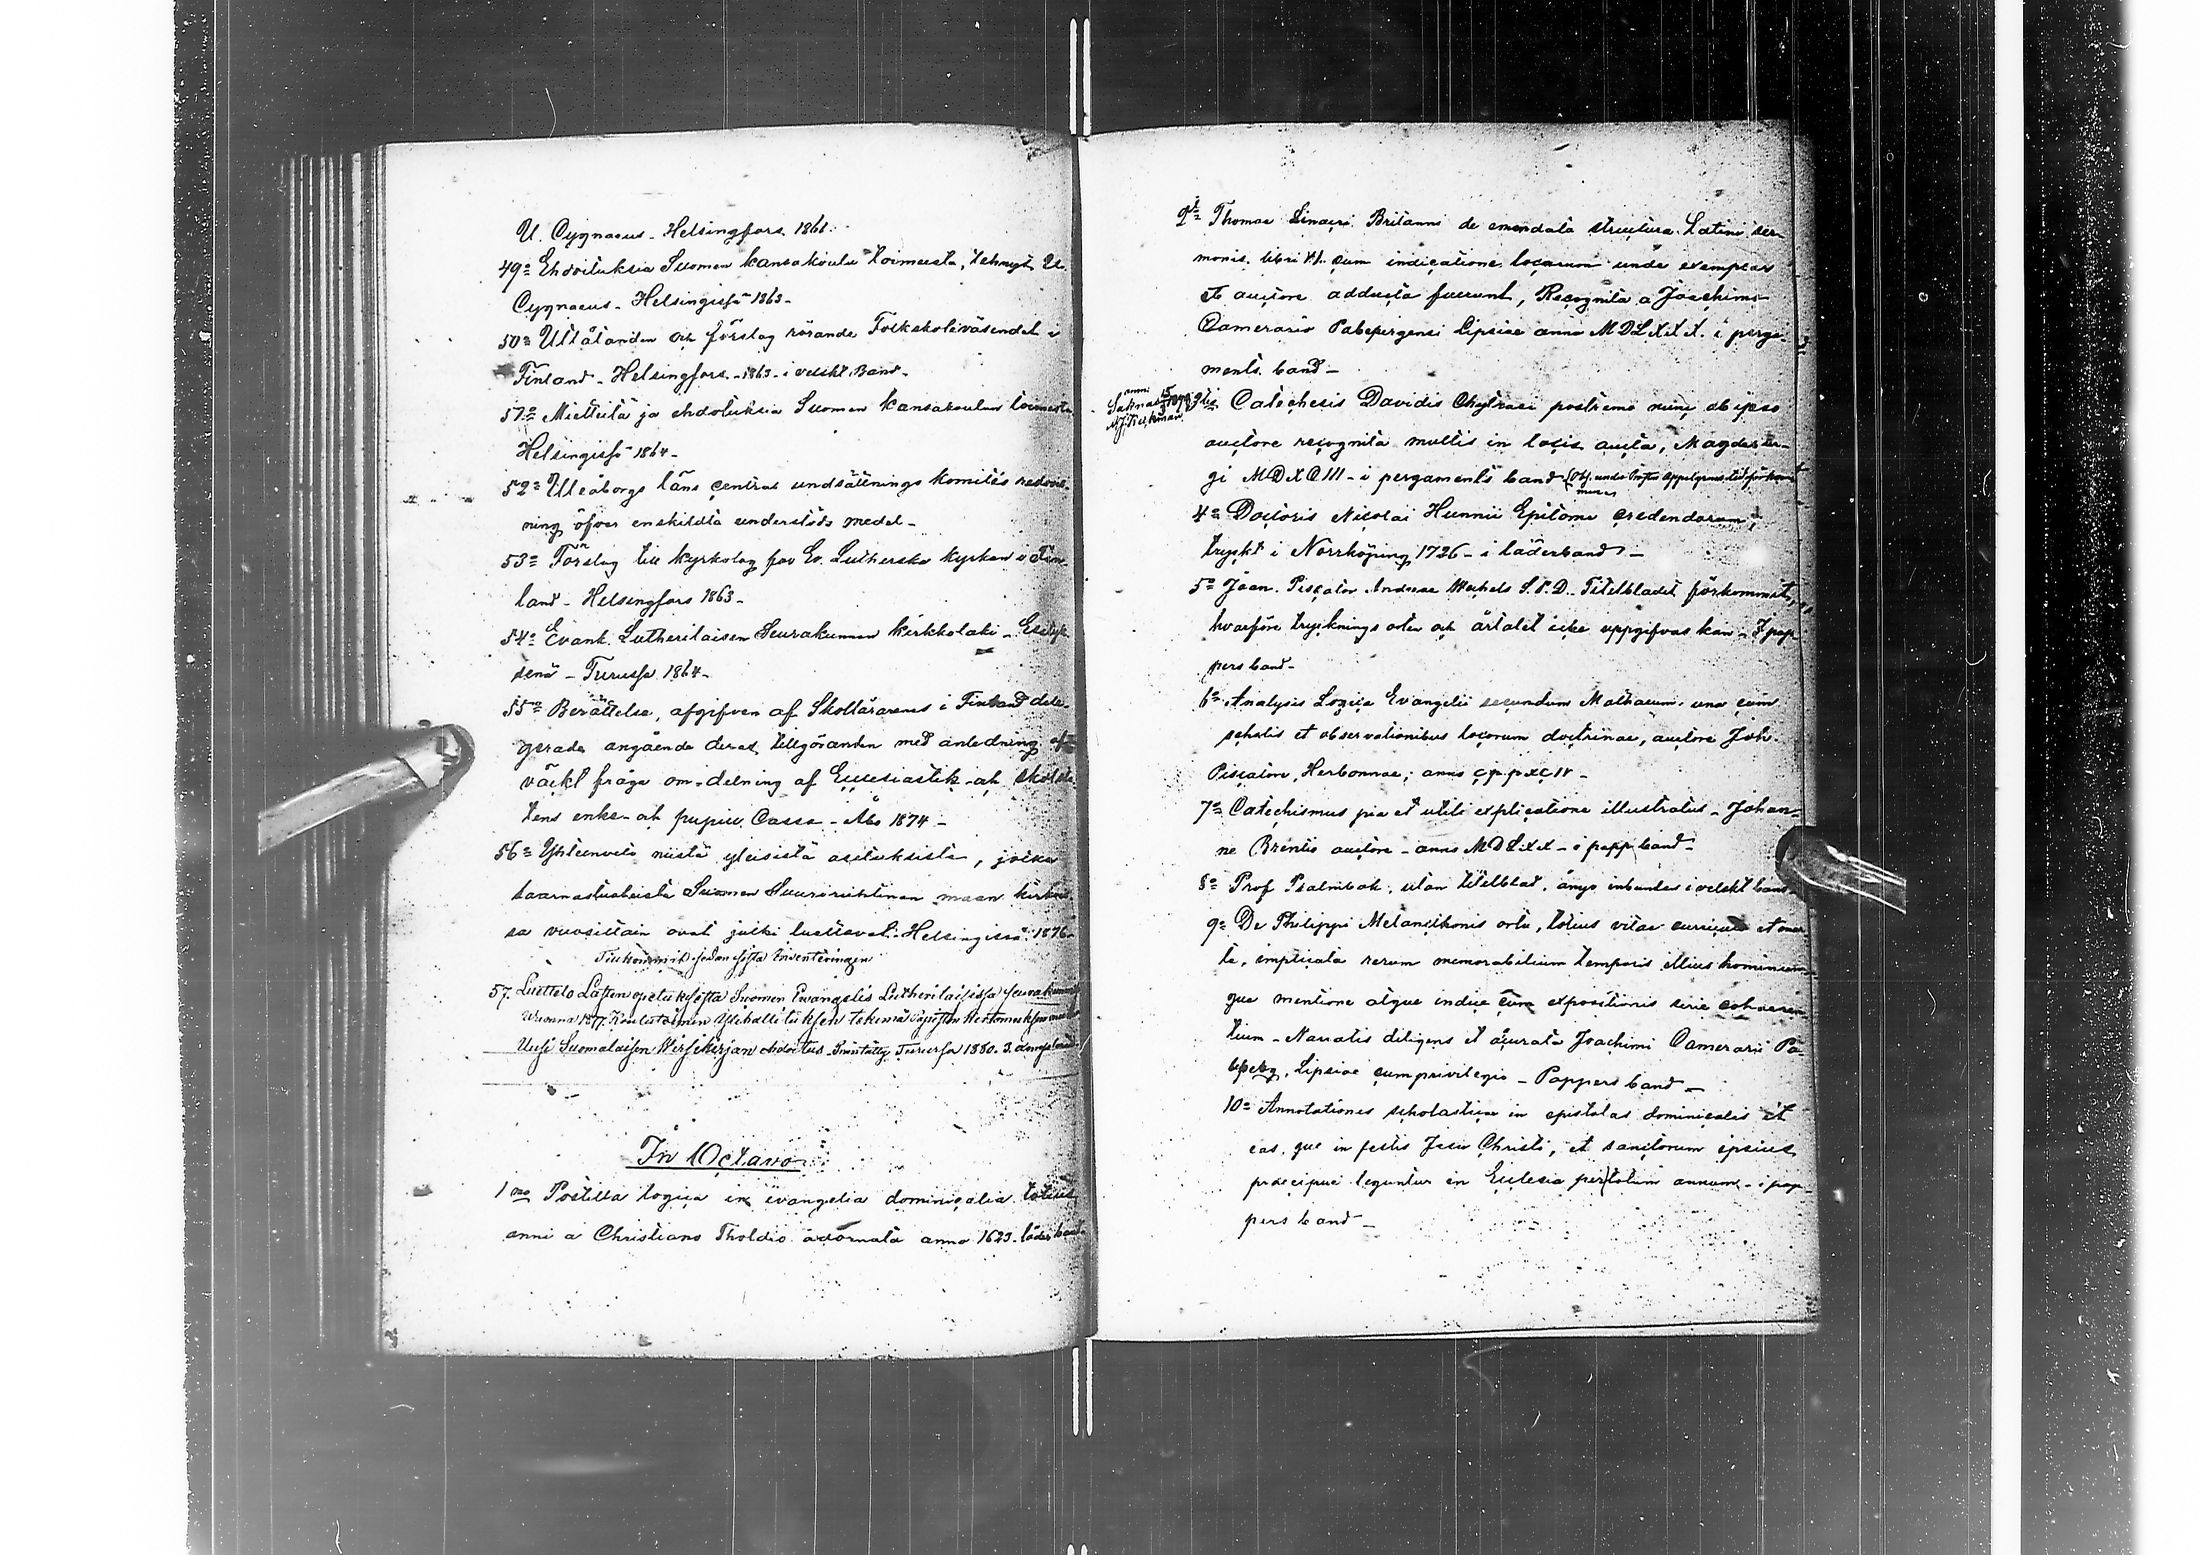 U. Cygnaeus - Helsingfors 1861.
49o Ehdoituksia Suomen kansakoulu toimesta, tehnyt U.
Cygnaeus - Helsingissä 1863 -
50o Utlåtanden och förslag rörande Folkskoleväsendet i
Finland - Helsingfors - 1863 - i velskt Band -
51o Mietteitä ja ehdotuksia Suomen kansakoulun toimesta
Helsingissä 1864 -
52o Uleåborgs läns central undsättnings komités redovis-
ning öfver enskildta understöds medel -
53o Förslag till kyrkolag för Ev. Lutherska kyrkan i Fin-
land - Helsingfors 1863 -
54o Evank. Lutherilaisen Seurakunnan kirkkolaki -
senä - Turussa 1864 -
55o Berättelse, afgifven af Skollärarenes i Finland dele-
gerade angående deras tillgöranden med anledning af
väckt fråga om delning af Ecclesiastik- och skolsta-
tens enke- och pupill Cassa - Åbo 1874 -
56o Yhteenveto niistä yleisistä asetuksista, jotka
Suomen Suuriruhtinan maan
sa vuosittain ovat julki luettavat. Helsingissä 1876 -
Tillkommit sedan sista Inventeringen
57. Luettelo Lasten opetuksesta Suomen Ewangelis Lutherilaisissa seurakunnissa
wuonna 1877. Koulutoimen Ylihallituksen tekemä
Uusi Suomalaisen Wirsikirjan ehdoitus Präntätty Turussa 1880. 3.
In Octavo
1mo Postilla logica in evangelia dominicalia totius
anni a Christiano Tholdio adornata anno 1623 - läderband
2o Thomae Linacri Britanni de emendata structura Latini ser-
monis libri VI. cum indicatione locorum unde exemplar
ab auctore adducta fuerunt, Recognita a Joachimo
Camerario Pabepergensi Lipsiae anno MDLXXX. i perga-
ments band -
Saknas
3tio Catechesis Davidis Chytraei postremo nunc ab ipso
auctore recognita multis in locis aucta, Magdebur-
gi MDXCIII - i pergaments band
4o Doctoris Nicolai Hunnii Epitome credendorum,
tryckt i Norrköping 1726 - i läderband -
5o Joan. Piscator Andreae Wechels S. P. D. Titelbladet förkommit,
hvarföre trycknings orten och årtalet icke uppgifvas kan - I pap-
pers band -
6o Analysis Logica Evangelii secundum Mathaeum. una cum
scholiis et observationibus locorum doctrinae, auctore Joh.
Piscatore, Herbornae; anno
7o Catechismus pia et utili explicatione illustratus - Johan-
ne Brentio auctore - anno MDLXX - i papp band -
8o Prof Psalmbok; utan titelblad, ånyo inbunden i velskt band -
9o De Philippi Melancthonis ortu, totius vitae curriculo et mor-
te, implicata rerum memorabilium temporis illius hominum-
que mentione atque indicio cum expositionis serie cohaeren-
tium - Narratio diligens et accurata Joachimi Camerarii Pa-
beperg, Lipsiae cum privilegio - Pappers band -
10o Annotationes scholasticae in epistolas dominicales et
eas, que in festis Jesu Christi, et sanctorum ipsius
praecipue leguntur in Ecclesia per totum annum - i pap-
pers band -